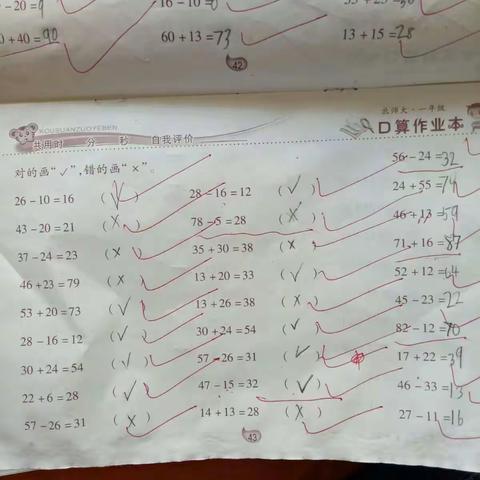 - 20 = 9
16 - 10 = 6
0 + 40 = 90
60 + 13 = 73
13 + 15 = 28
42
KOUSUANZUOYEBEN
北师大·一年级
口算作业本
共用时 分 秒 自我评价
对的画“✓”,错的画“×”。
56 - 24 = 32
26 - 10 = 16 (✓) 28 - 16 = 12 (✓) 24 + 55 = 74
43 - 20 = 21 (×) 78 - 5 = 28 (×) 46 + 13 = 59
37 - 24 = 23 (×) 35 + 30 = 38 (×) 71 + 16 = 87
46 + 23 = 79 (×) 13 + 20 = 33 (✓) 52 + 12 = 64
53 + 20 = 73 (✓) 13 + 26 = 38 (×) 45 - 23 = 22
28 - 16 = 12 (✓) 30 + 24 = 54 (✓) 82 - 12 = 70
30 + 24 = 54 (✓) 57 - 26 = 31 (✓) 17 + 22 = 39
22 + 6 = 28 (✓) 47 - 15 = 32 (✓) 46 - 33 = 13
57 - 26 = 31 (×) 14 + 13 = 28 (×) 27 - 11 = 16
43